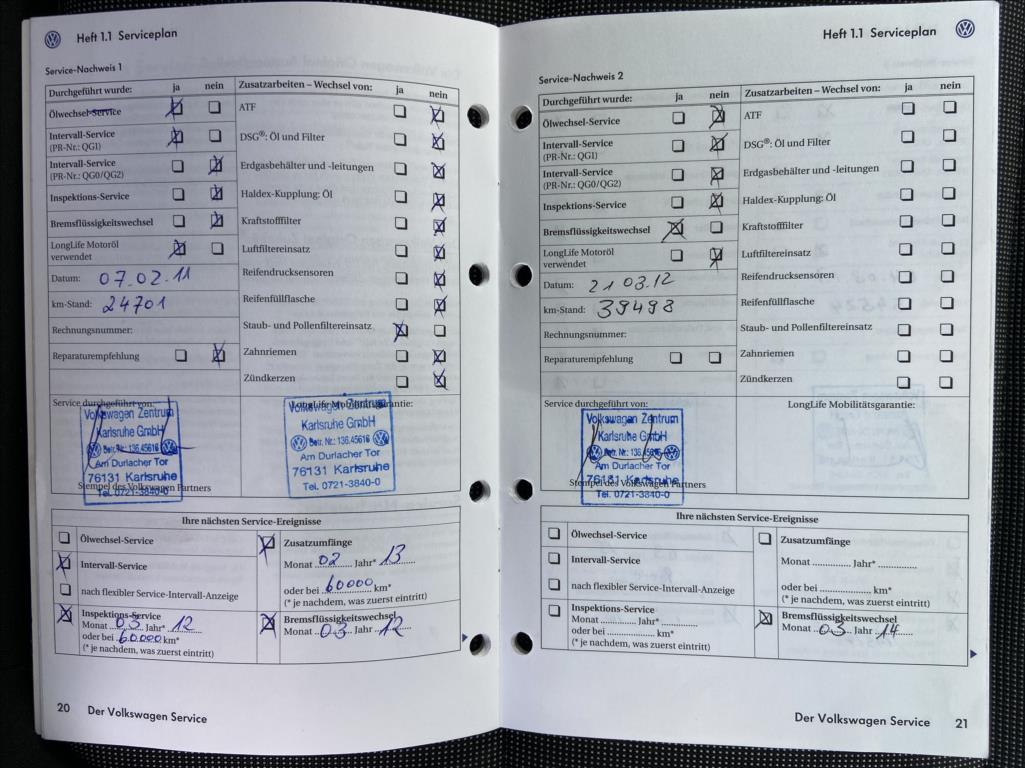 Heft 1.1 Serviceplan
Service-Nachweis 1
Durchgeführt wurde: ja nein
Ölwechsel-Service
Intervall-Service
(PR-Nr.: QG1)
Intervall-Service
(PR-Nr.: QG0/QG2)
Inspektions-Service
Bremsflüssigkeitswechsel
LongLife Motoröl
verwendet
Datum: 07.02.11
km-Stand: 24701
Rechnungsnummer:
Reparaturempfehlung
Zusatzarbeiten – Wechsel von: ja nein
ATF
DSG®: Öl und Filter
Erdgasbehälter und -leitungen
Haldex-Kupplung: Öl
Kraftstofffilter
Luftfiltereinsatz
Reifendrucksensoren
Reifenfüllflasche
Staub- und Pollenfiltereinsatz
Zahnriemen
Zündkerzen
Service durchgeführt von:
Volkswagen Zentrum
Karlsruhe GmbH
Betr. Nr.: 136.45616
Am Durlacher Tor
76131 Karlsruhe
Tel. 0721-3840-0
Stempel des Volkswagen Partners
LongLife Mobilitätsgarantie:
Volkswagen Zentrum
Karlsruhe GmbH
Betr. Nr.: 136.45616
Am Durlacher Tor
76131 Karlsruhe
Tel. 0721-3840-0
Ihre nächsten Service-Ereignisse
Ölwechsel-Service
Intervall-Service
nach flexibler Service-Intervall-Anzeige
Inspektions-Service
Monat 03 Jahr* 12
oder bei 60000 km*
(* je nachdem, was zuerst eintritt)
Zusatzumfänge
Monat 02 Jahr* 13
oder bei 60000 km*
(* je nachdem, was zuerst eintritt)
Bremsflüssigkeitswechsel
Monat 03 Jahr 12
20 Der Volkswagen Service
Heft 1.1 Serviceplan
Service-Nachweis 2
Durchgeführt wurde: ja nein
Ölwechsel-Service
Intervall-Service
(PR-Nr.: QG1)
Intervall-Service
(PR-Nr.: QG0/QG2)
Inspektions-Service
Bremsflüssigkeitswechsel
LongLife Motoröl
verwendet
Datum: 21 03.12
km-Stand: 39498
Rechnungsnummer:
Reparaturempfehlung
Zusatzarbeiten – Wechsel von: ja nein
ATF
DSG®: Öl und Filter
Erdgasbehälter und -leitungen
Haldex-Kupplung: Öl
Kraftstofffilter
Luftfiltereinsatz
Reifendrucksensoren
Reifenfüllflasche
Staub- und Pollenfiltereinsatz
Zahnriemen
Zündkerzen
Service durchgeführt von:
Volkswagen Zentrum
Karlsruhe GmbH
Betr. Nr.: 136.45616
Am Durlacher Tor
76131 Karlsruhe
Tel. 0721-3840-0
Stempel des Volkswagen Partners
LongLife Mobilitätsgarantie:
Ihre nächsten Service-Ereignisse
Ölwechsel-Service
Intervall-Service
nach flexibler Service-Intervall-Anzeige
Inspektions-Service
Monat Jahr*
oder bei km*
(* je nachdem, was zuerst eintritt)
Zusatzumfänge
Monat Jahr*
oder bei km*
(* je nachdem, was zuerst eintritt)
Bremsflüssigkeitswechsel
Monat 03 Jahr 14
Der Volkswagen Service 21